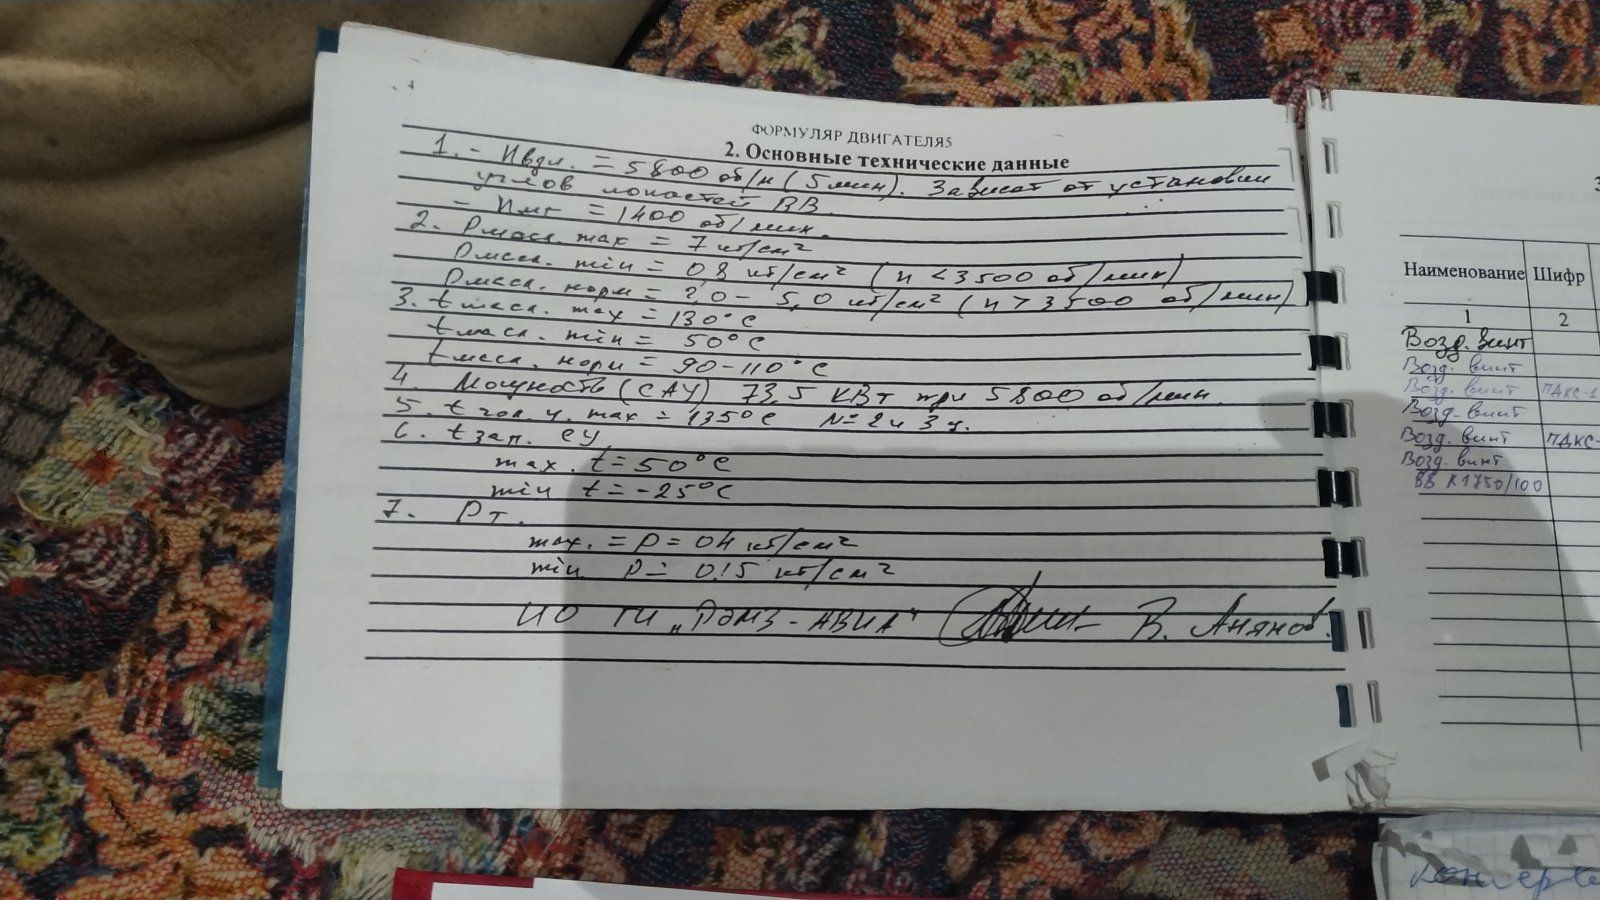 ФОРМУЛЯР ДВИГАТЕЛЯ5
2. Основные технические данные
1. - nвзл. = 5800 об/м (5 мин). Зависят от установки
углов лопастей ВВ.
- nмг = 1400 об/мин.
2. Pмасл. max = 7 кг/см²
Pмасл. min = 0,8 кг/см² (n < 3500 об/мин)
Pмасл. норм = 2,0 - 5,0 кг/см² (n > 3500 об/мин)
3. tмасл. max = 130°C
tмасл. min = 50°C
tмасл. норм = 90-110°C
4. Мощность (САУ) 73,5 КВт при 5800 об/мин.
5. t гол. ц. max = 135°C № 2 и 3 ц.
6. t зап. СУ
max. t = 50°C
min t = -25°C
7. Pт.
max. = P = 0,4 кг/см²
min P = 0,15 кг/см²
ИО ГИ "РЭМЗ-АВИА" В. Аянов.
Наименование Шифр
1 2
Возд. винт
Возд. винт
Возд. винт ПДКС-1
Возд. винт
Возд. винт ПДКС-
Возд. винт
ВВ К1750/100